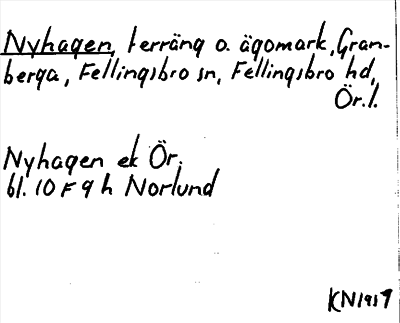 Nyhagen, terräng o. ägomark, Gran-
berga, Fellingsbro sn, Fellingsbro hd,
Ör.l.
Nyhagen ek Ör.
bl. 10 F 9 h Norlund
KN1917